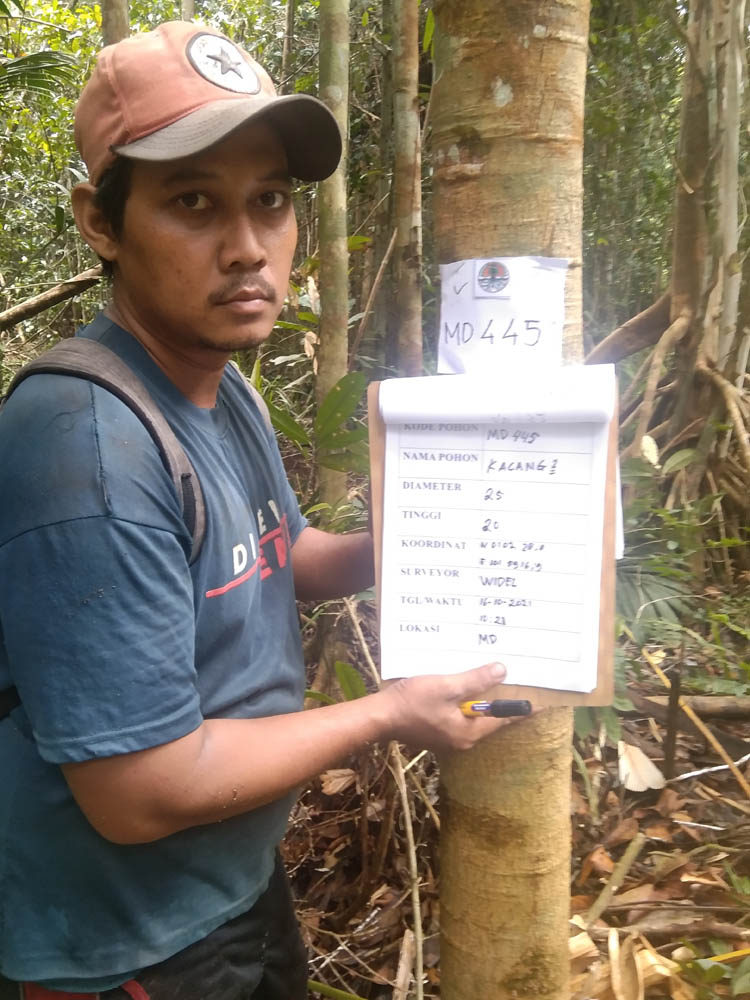 MD 445
KODE POHON MD 445
NAMA POHON KACANG 2
DIAMETER 25
TINGGI 20
KOORDINAT N 0102 28,0
E 001 5916,9
SURVEYOR WIDEL
TGL/WAKTU 16-10-2021
10:28
LOKASI MD